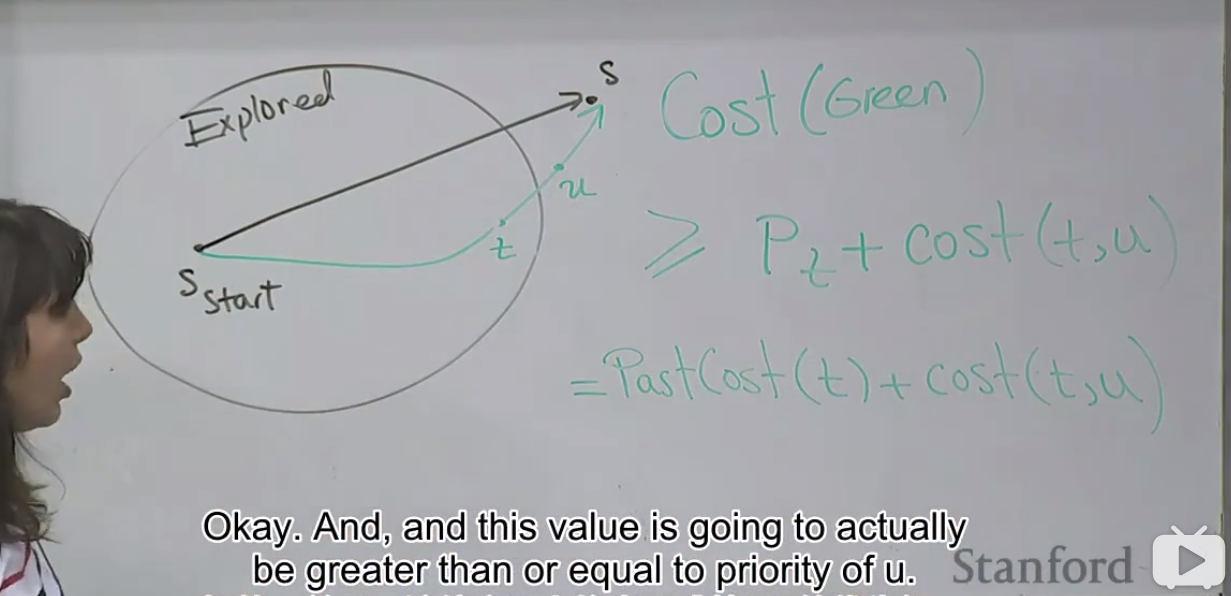 Explored
S
Cost (Green)
u
≥ Pt + cost(t,u)
t
Sstart
= PastCost(t) + cost(t,u)
Okay. And, and this value is going to actually
be greater than or equal to priority of u.
Stanford